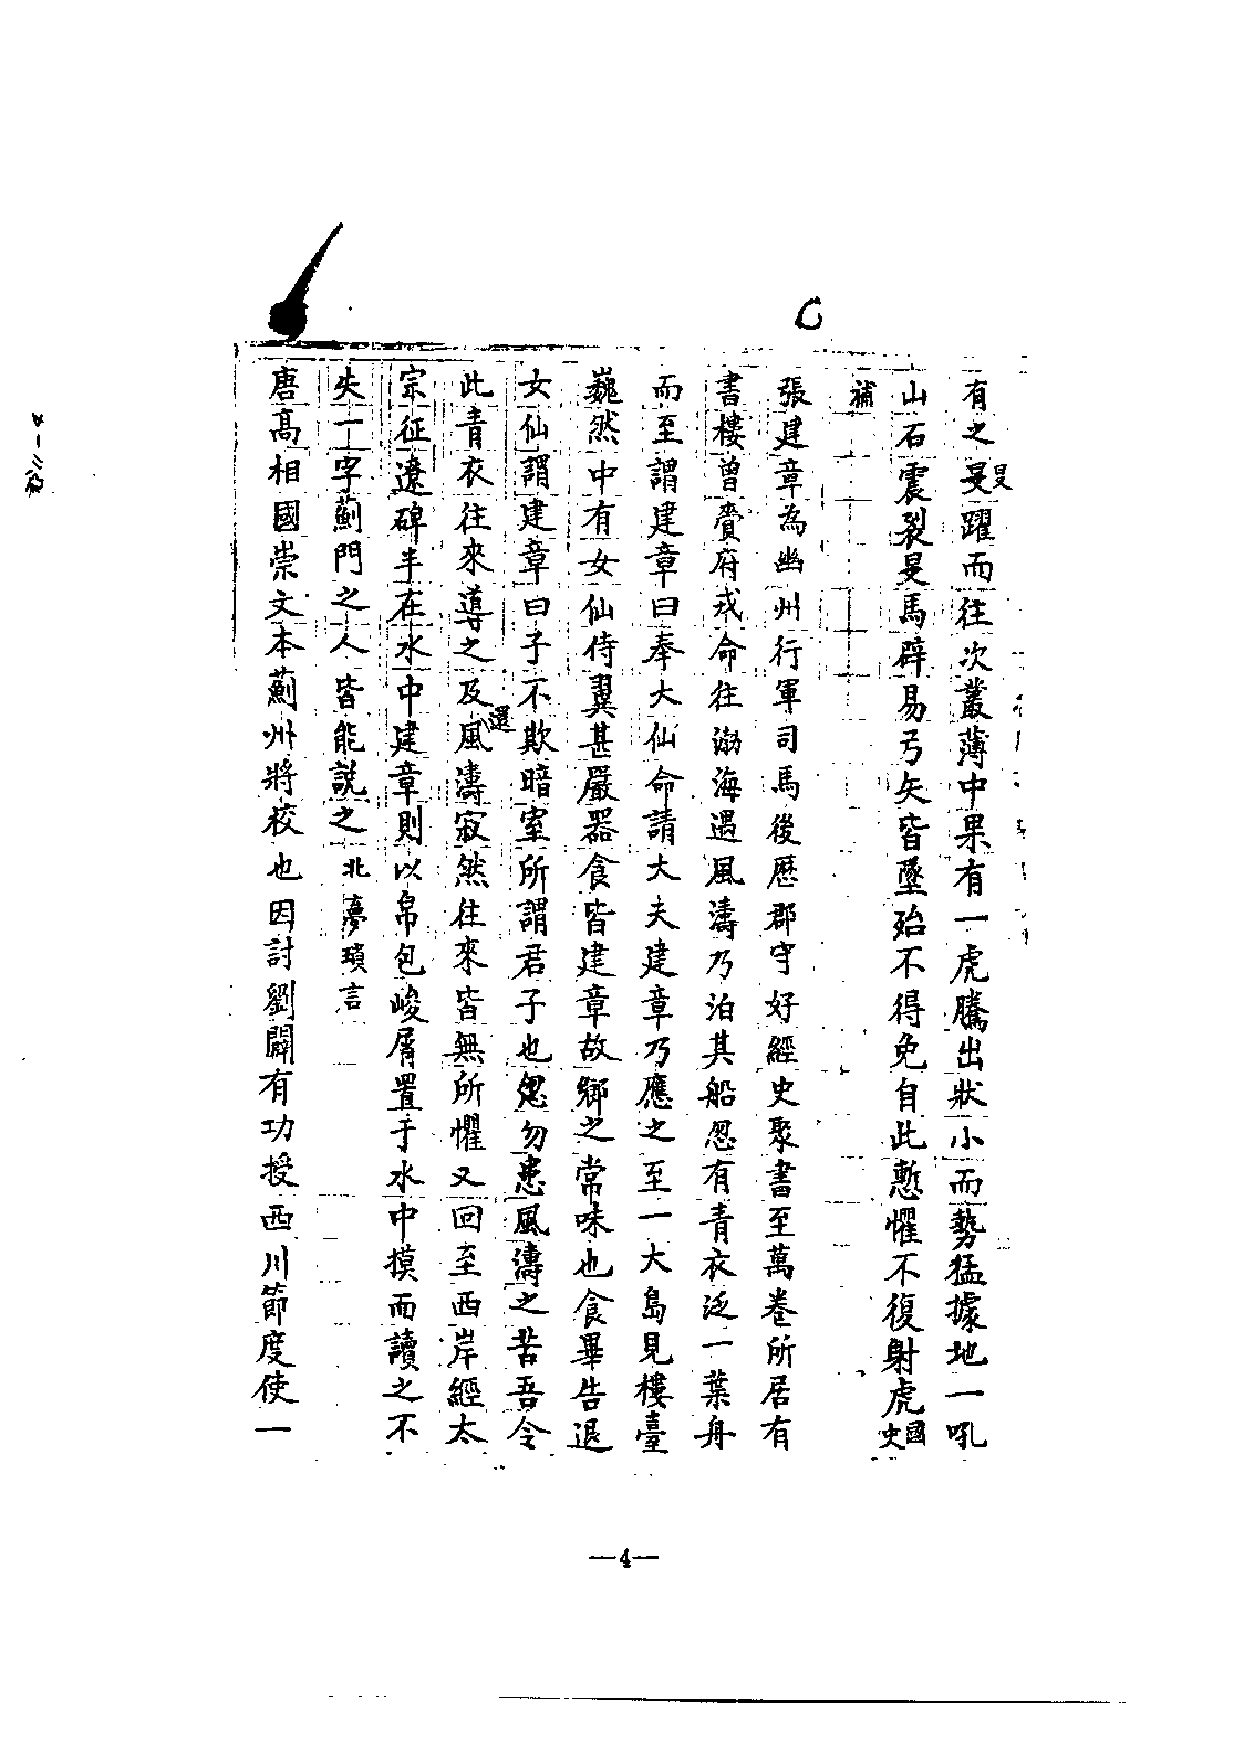 有之旻旻躍而往次叢薄中果有一虎騰出狀小而勢猛據地一吼
山石震裂旻馬辟易弓矢皆墜殆不得免自此慙懼不復射虎國史
補
張建章為幽州行軍司馬後歷郡守好經史聚書至萬卷所居有
書樓曾賫府戎命往渤海遇風濤乃泊其船忽有青衣泛一葉舟
而至謂建章曰奉大仙命請大夫建章乃應之至一大島見樓臺
巍然中有女仙侍翼甚嚴器食皆建章故鄉之常味也食畢告退
女仙謂建章曰子不欺暗室所謂君子也忽勿患風濤之苦吾令
此青衣往來導之及還風濤寂然往來皆無所懼又回至西岸經太
宗征遼碑半在水中建章則以帛包峻屑置于水中摸而讀之不
失一字薊門之人皆能說之北夢瑣言
唐高相國崇文本薊州將校也因討劉闢有功授西川節度使一
—4—